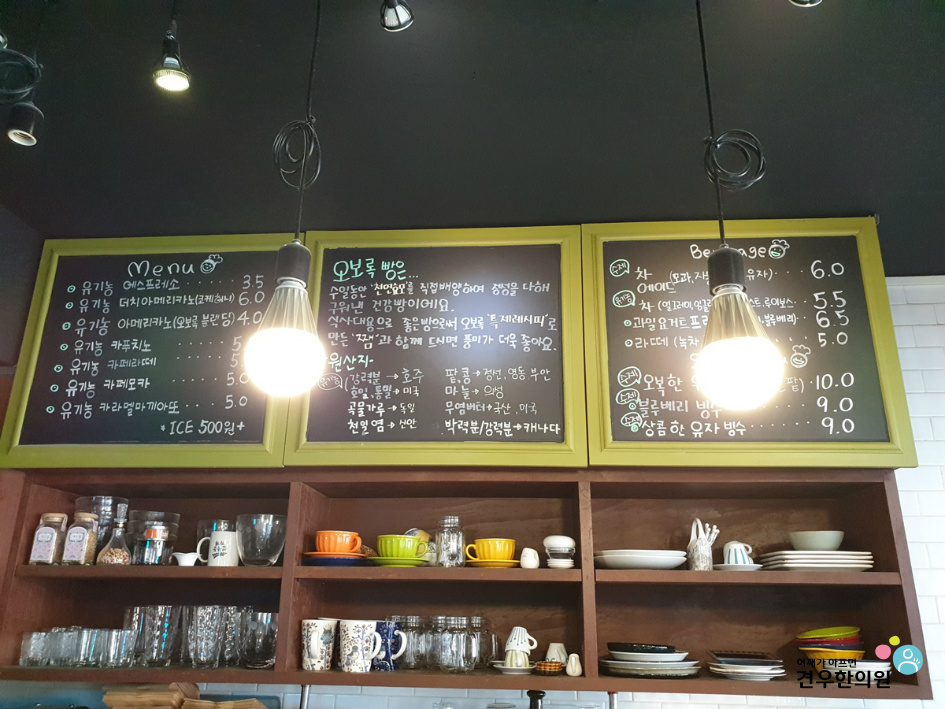 Menu
유기농 에스프레소 3.5
유기농 더치아메리카노(코케허니) 6.0
유기농 아메리카노(오보록 블렌딩) 4.0
유기농 카푸치노 5
유기농 카페라떼 5.
유기농 카페모카 5.0
유기농 카라멜마끼아또 5.0
*ICE 500원+
오보록 빵은...
수일동안 '천연효모'를 직접배양하여 정성을 다해
구워낸 건강빵이에요.
식사대용으로 좋은빵으로써 오보록 '특제레시피'로
만든 '쨈'과 함께 드시면 풍미가 더욱 좋아요.
원산지-
강력분 → 호주
호밀, 통밀 → 미국
곡물가루 → 독일
천일염 → 신안
팥, 콩 → 정선, 영동 부안
마늘 → 의성
무염버터 → 국산, 미국
박력분/강력분 → 캐나다
Beverage
수제 차 (모과, 유자) 6.0
에이드
차 (얼그레이, 루이보스) 5.5
과일요거트 블루베리) 6.5
라떼 (녹차 5.0
수제 오보록한 팥) 10.0
수제 블루베리 빙수 9.0
수제 상콤한 유자 빙수 9.0
어깨가 아프면
견우한의원